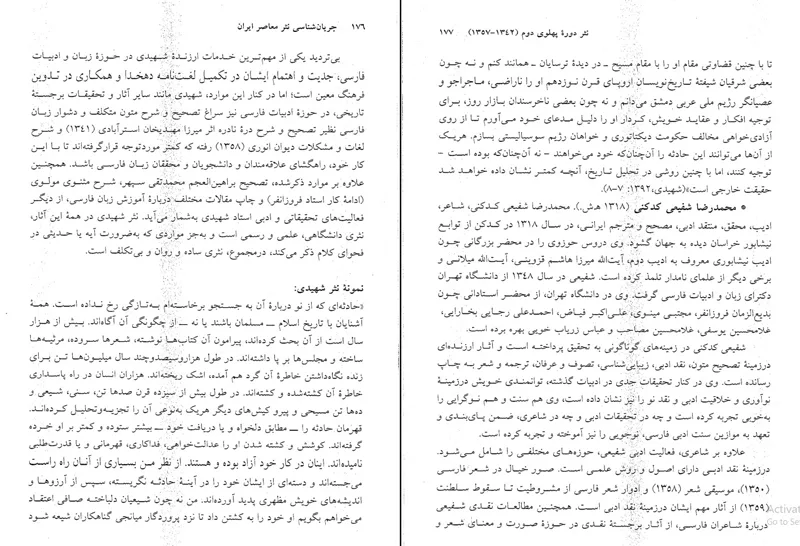 ۱۷۶ جریان‌شناسی نثر معاصر ایران
بی‌تردید یکی از مهم‌ترین خدمات ارزندهٔ شهیدی در حوزهٔ زبان و ادبیات
فارسی، جدیت و اهتمام ایشان در تکمیل لغت‌نامه دهخدا و همکاری در تدوین
فرهنگ معین است؛ اما در کنار این موارد، شهیدی مانند سایر آثار و تحقیقات برجستهٔ
تاریخی، در حوزهٔ ادبیات فارسی نیز سراغ تصحیح و شرح متون متکلف و دشوار زبان
فارسی نظیر تصحیح و شرح درهٔ نادره اثر میرزا مهدیخان استرآبادی (۱۳۴۱) و شرح
لغات و مشکلات دیوان انوری (۱۳۵۸) رفته که کمتر موردتوجه قرارگرفته‌اند تا با این
کار خود، راهگشای علاقه‌مندان و دانشجویان و محققان زبان فارسی باشد. همچنین
علاوه بر موارد ذکرشده، تصحیح براهین‌العجم محمدتقی سپهر، شرح مثنوی مولوی
(ادامهٔ کار استاد فروزانفر) و چاپ مقالات مختلف دربارهٔ آموزش زبان فارسی، از دیگر
فعالیت‌های تحقیقاتی و ادبی استاد شهیدی به‌شمار می‌آید. نثر شهیدی در همهٔ این آثار،
نثری دانشگاهی، علمی و رسمی است و به‌جز مواردی که به‌ضرورت آیه یا حدیثی در
فحوای کلام ذکر می‌کند، درمجموع، نثری ساده و روان و بی‌تکلف است.
نمونهٔ نثر شهیدی:
«حادثه‌ای که از نو دربارهٔ آن به جستجو برخاسته‌ام به‌تازگی رخ نداده است. همهٔ
آشنایان با تاریخ اسلام ــ مسلمان باشند یا نه ــ از چگونگی آن آگاه‌اند. بیش از هزار
سال است از آن بحث کرده‌اند، پیرامون آن کتاب‌ها نوشته، شعرها سروده، مرثیه‌ها
ساخته و مجلس‌ها بر پا داشته‌اند. در طول هزاروسیصدوچند سال میلیون‌ها تن برای
زنده نگاه‌داشتن خاطرهٔ آن گرد هم آمده، اشک ریخته‌اند. هزاران انسان در راه پاسداری
خاطرهٔ آن کشته‌شده و کشته‌اند. در طول بیش از سیزده قرن صدها تن، سنی، شیعی و
ده‌ها تن مسیحی و پیرو کیش‌های دیگر هریک به‌نوعی آن را تجزیه‌وتحلیل کرده‌اند.
قهرمان حادثه را ــ مطابق دلخواه و یا دریافت خود ــ بیشتر ستوده و کمتر بر او خرده
گرفته‌اند. کوشش و کشته شدن او را عدالت‌خواهی، فداکاری، قهرمانی و یا قدرت‌طلبی
نامیده‌اند. اینان در کار خود آزاد بوده و هستند. از نظر من بسیاری از آنان راه راست
می‌جسته‌اند و دسته‌ای از ایشان خود را در آینهٔ حادثه نگریسته، سپس از آرزوها و
اندیشه‌های خویش مظهری پدید آورده‌اند. من نه چون شیعیان دلباخته صافی اعتقاد
می‌خواهم بگویم او خود را به کشتن داد تا نزد پروردگار میانجی گناهکاران شیعه شود
نثر دورهٔ پهلوی دوم (۱۳۴۲-۱۳۵۷) ۱۷۷
تا با چنین قضاوتی مقام او را با مقام مسیح ــ در دیدهٔ ترسایان ــ همانند کنم و نه چون
بعضی شرقیان شیفتهٔ تاریخ‌نویسان اروپای قرن نوزدهم او را ناراضی، ماجراجو و
عصیانگر رژیم ملی عربی دمشق می‌دانم و نه چون بعضی ناخرسندان بازار روز، برای
توجیه افکار و عقاید خویش، کردار او را دلیل مدعای خود می‌آورم تا از روی
آزادی‌خواهی مخالف حکومت دیکتاتوری و خواهان رژیم سوسیالیستی بسازم. هریک
از آن‌ها می‌توانند این حادثه را آن‌چنان‌که خود می‌خواهند – نه آن‌چنان‌که بوده است –
توجیه کنند، اما با چنین روشی در تحلیل تاریخ، آنچه کمتر نشان داده خواهد شد
حقیقت خارجی است»(شهیدی،۱۳۹۲: ۷–۸).
* محمدرضا شفیعی کدکنی (۱۳۱۸ ه.ش). محمدرضا شفیعی کدکنی، شاعر،
ادیب، محقق، منتقد ادبی، مصحح و مترجم ایرانی، در سال ۱۳۱۸ در کدکن از توابع
نیشابور خراسان دیده به جهان گشود. وی دروس حوزوی را در محضر بزرگانی چون
ادیب نیشابوری معروف به ادیب دوم، آیت‌الله میرزا هاشم قزوینی، آیت‌الله میلانی و
برخی دیگر از علمای نامدار تلمذ کرده است. شفیعی در سال ۱۳۴۸ از دانشگاه تهران
دکترای زبان و ادبیات فارسی گرفت. وی در دانشگاه تهران، از محضر استادانی چون
بدیع‌الزمان فروزانفر، مجتبی مینوی، علی‌اکبر فیاض، احمدعلی رجایی بخارایی،
غلامحسین یوسفی، غلامحسین مصاحب و عباس زریاب خویی بهره برده است.
شفیعی کدکنی در زمینه‌های گوناگونی به تحقیق پرداخته است و آثار ارزنده‌ای
درزمینهٔ تصحیح متون، نقد ادبی، زیبایی‌شناسی، تصوف و عرفان، ترجمه و شعر به چاپ
رسانده است. وی در کنار تحقیقات جدی در ادبیات گذشته، توانمندی خویش درزمینهٔ
نوآوری و خلاقیت ادبی و نقد نو را نیز نشان داده است، وی هم سنت و هم نوگرایی را
به‌خوبی تجربه کرده است و چه در تحقیقات ادبی و چه در شاعری، ضمن پای‌بندی و
تعهد به موازین سنت ادبی فارسی، نوجویی را نیز آموخته و تجربه کرده است.
علاوه بر شاعری، فعالیت ادبی شفیعی، حوزه‌های مختلفی را شامل می‌شود.
درزمینهٔ نقد ادبی دارای اصول و روش علمی است. صور خیال در شعر فارسی
(۱۳۵۰)، موسیقی شعر (۱۳۵۸) و ادوار شعر فارسی از مشروطیت تا سقوط سلطنت
(۱۳۵۹) از آثار مهم ایشان درزمینهٔ نقد ادبی است. همچنین مطالعات و تحقیقات او
دربارهٔ شاعران فارسی، از آثار برجستهٔ نقدی در حوزهٔ صورت و معنای شعر و
Activat
Go to Se